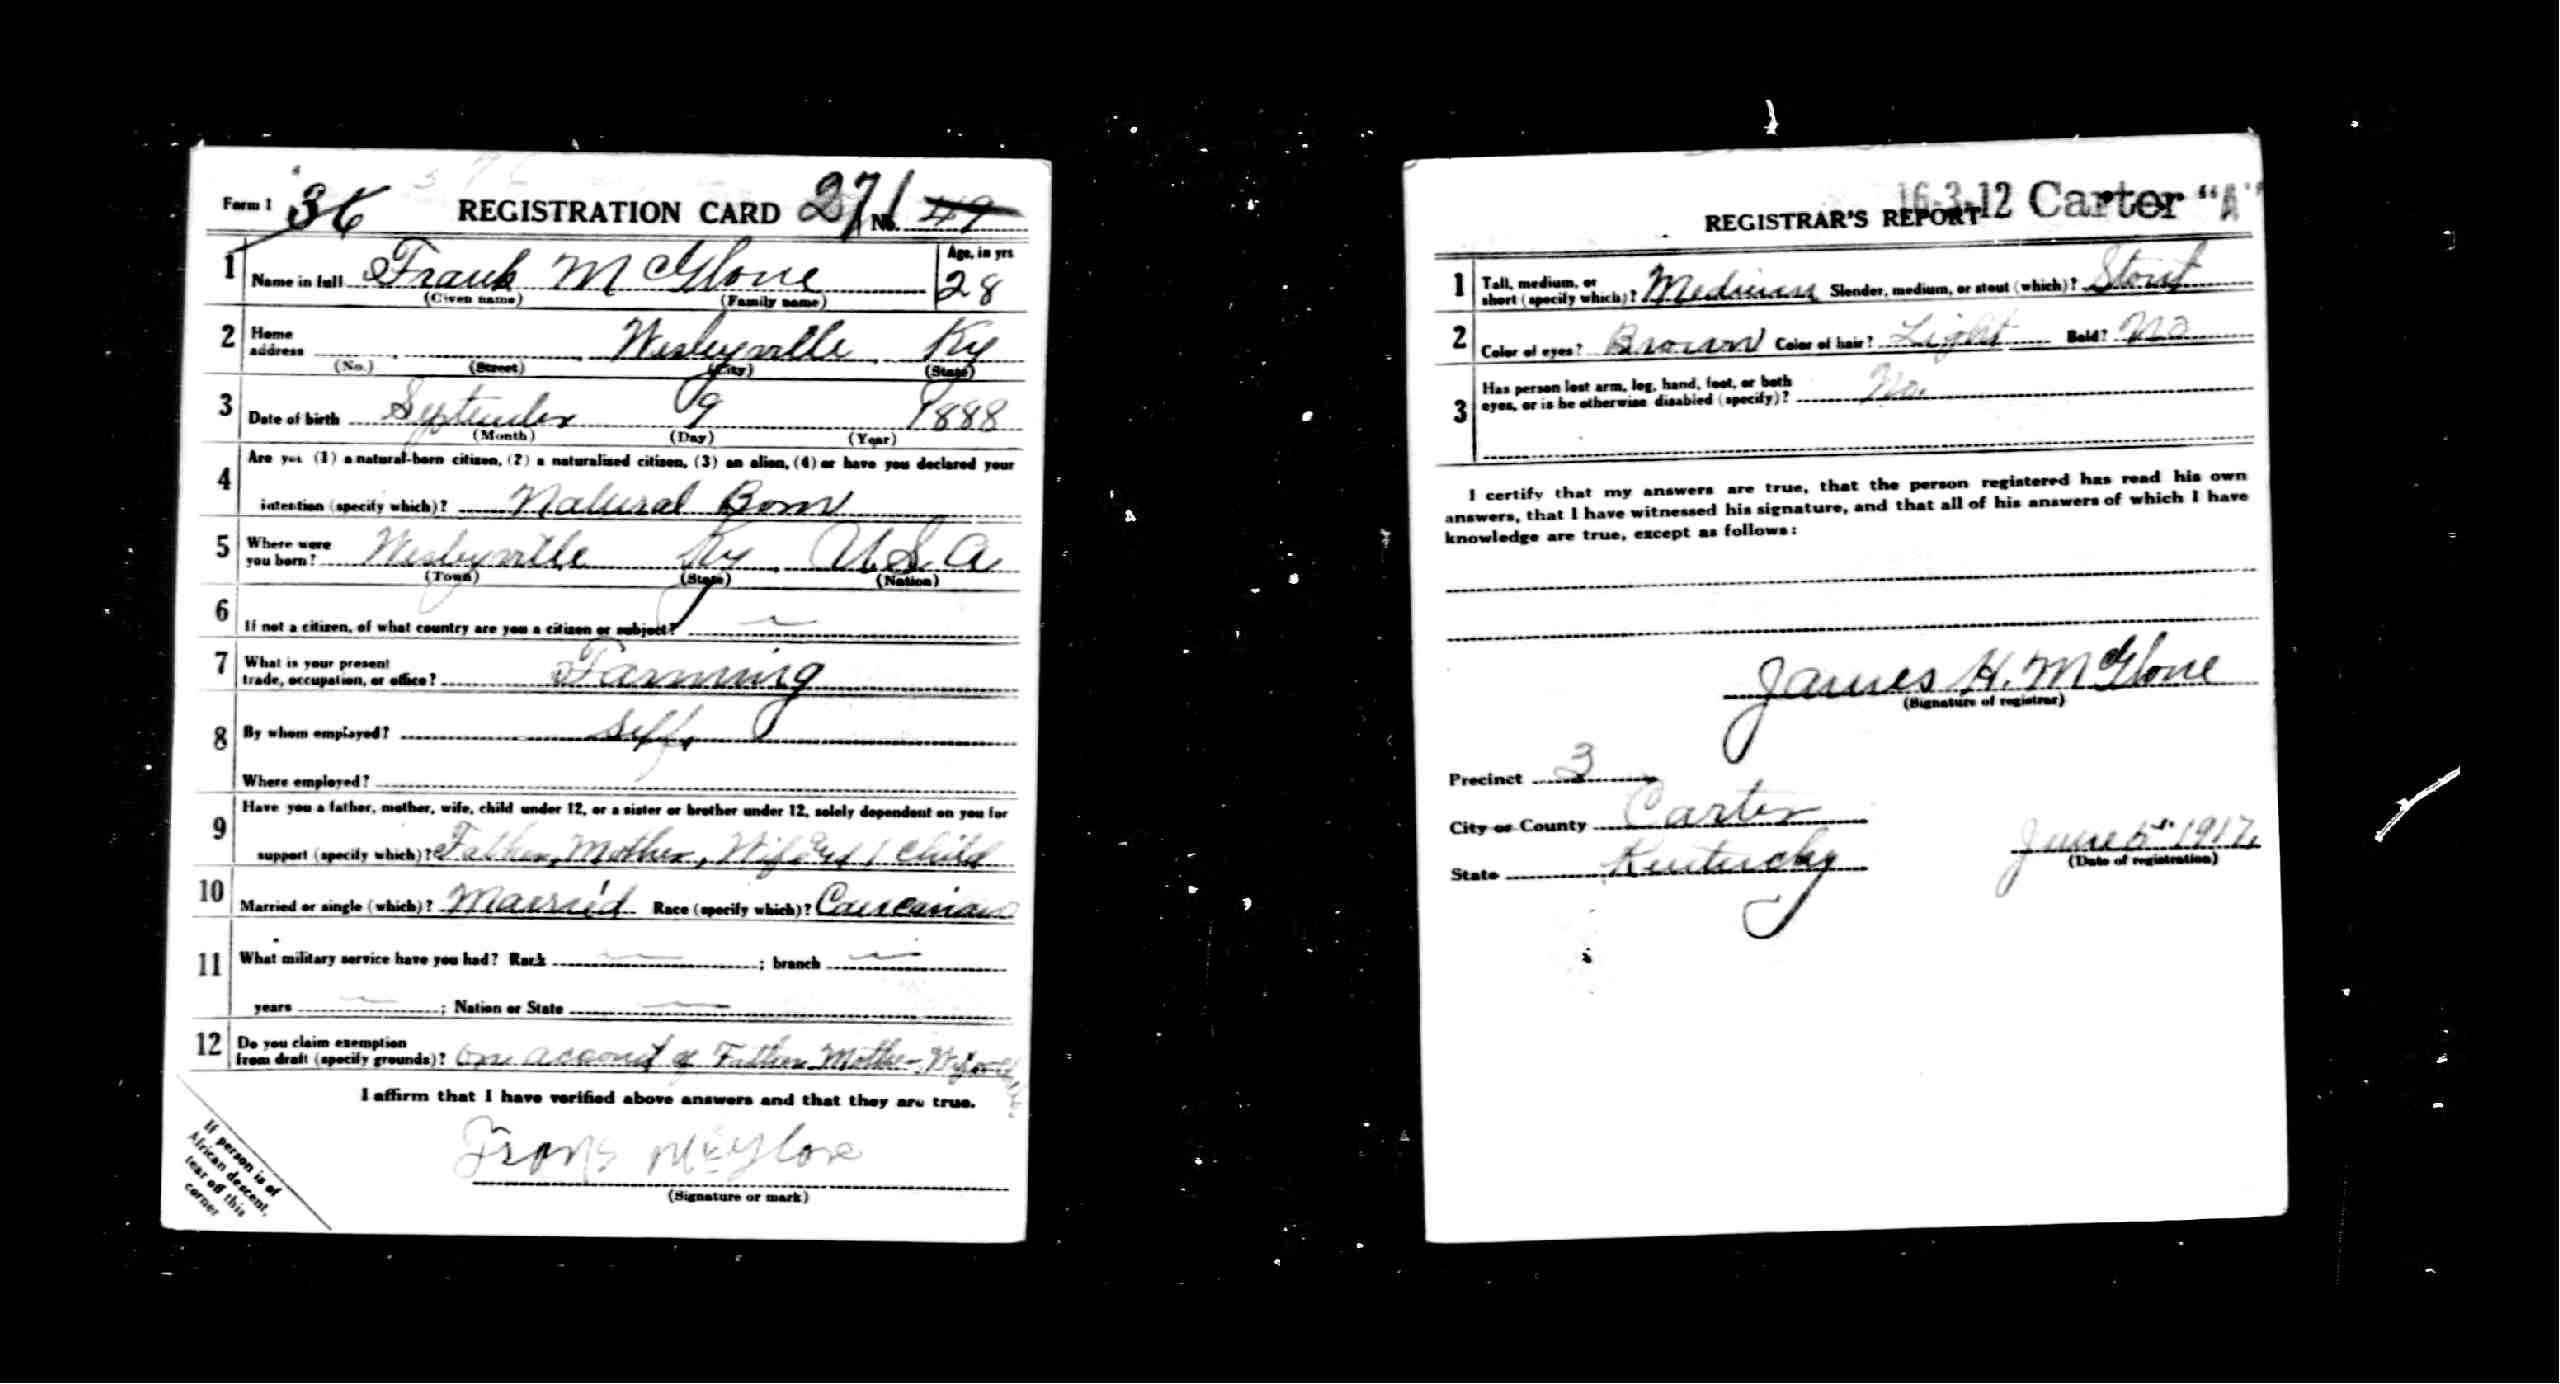 Form 1 36 REGISTRATION CARD 271 No. 49
1 Name in full Frank McGlone Age, in yrs 28
(Given name) (Family name)
2 Home address Wesleyville Ky
(No.) (Street) (City) (State)
3 Date of birth September 9 1888
(Month) (Day) (Year)
4 Are you (1) a natural-born citizen, (2) a naturalized citizen, (3) an alien, (4) or have you declared your
intention (specify which)? Natural Born
5 Where were you born? Wesleyville Ky U S A
(Town) (State) (Nation)
6 If not a citizen, of what country are you a citizen or subject? —
7 What is your present trade, occupation, or office? Farming
8 By whom employed? Self
Where employed?
9 Have you a father, mother, wife, child under 12, or a sister or brother under 12, solely dependent on you for
support (specify which)? Father, Mother, Wife and 1 Child
10 Married or single (which)? Married Race (specify which)? Caucasian
11 What military service have you had? Rank — ; branch —
years — ; Nation or State —
12 Do you claim exemption
from draft (specify grounds)? on account of Father Mother Wife and
I affirm that I have verified above answers and that they are true.
Frank McGlone
(Signature or mark)
If person is of
African descent,
tear off this
corner
16-3-12 Carter "A"
REGISTRAR'S REPORT
1 Tall, medium, or short (specify which)? Medium Slender, medium, or stout (which)? Stout
2 Color of eyes? Brown Color of hair? Light Bald? No
3 Has person lost arm, leg, hand, foot, or both
eyes, or is he otherwise disabled (specify)? No.
I certify that my answers are true, that the person registered has read his own
answers, that I have witnessed his signature, and that all of his answers of which I have
knowledge are true, except as follows:
James H. McGlone
(Signature of registrar)
Precinct 3
City or County Carter
State Kentucky
June 5th 1917.
(Date of registration)